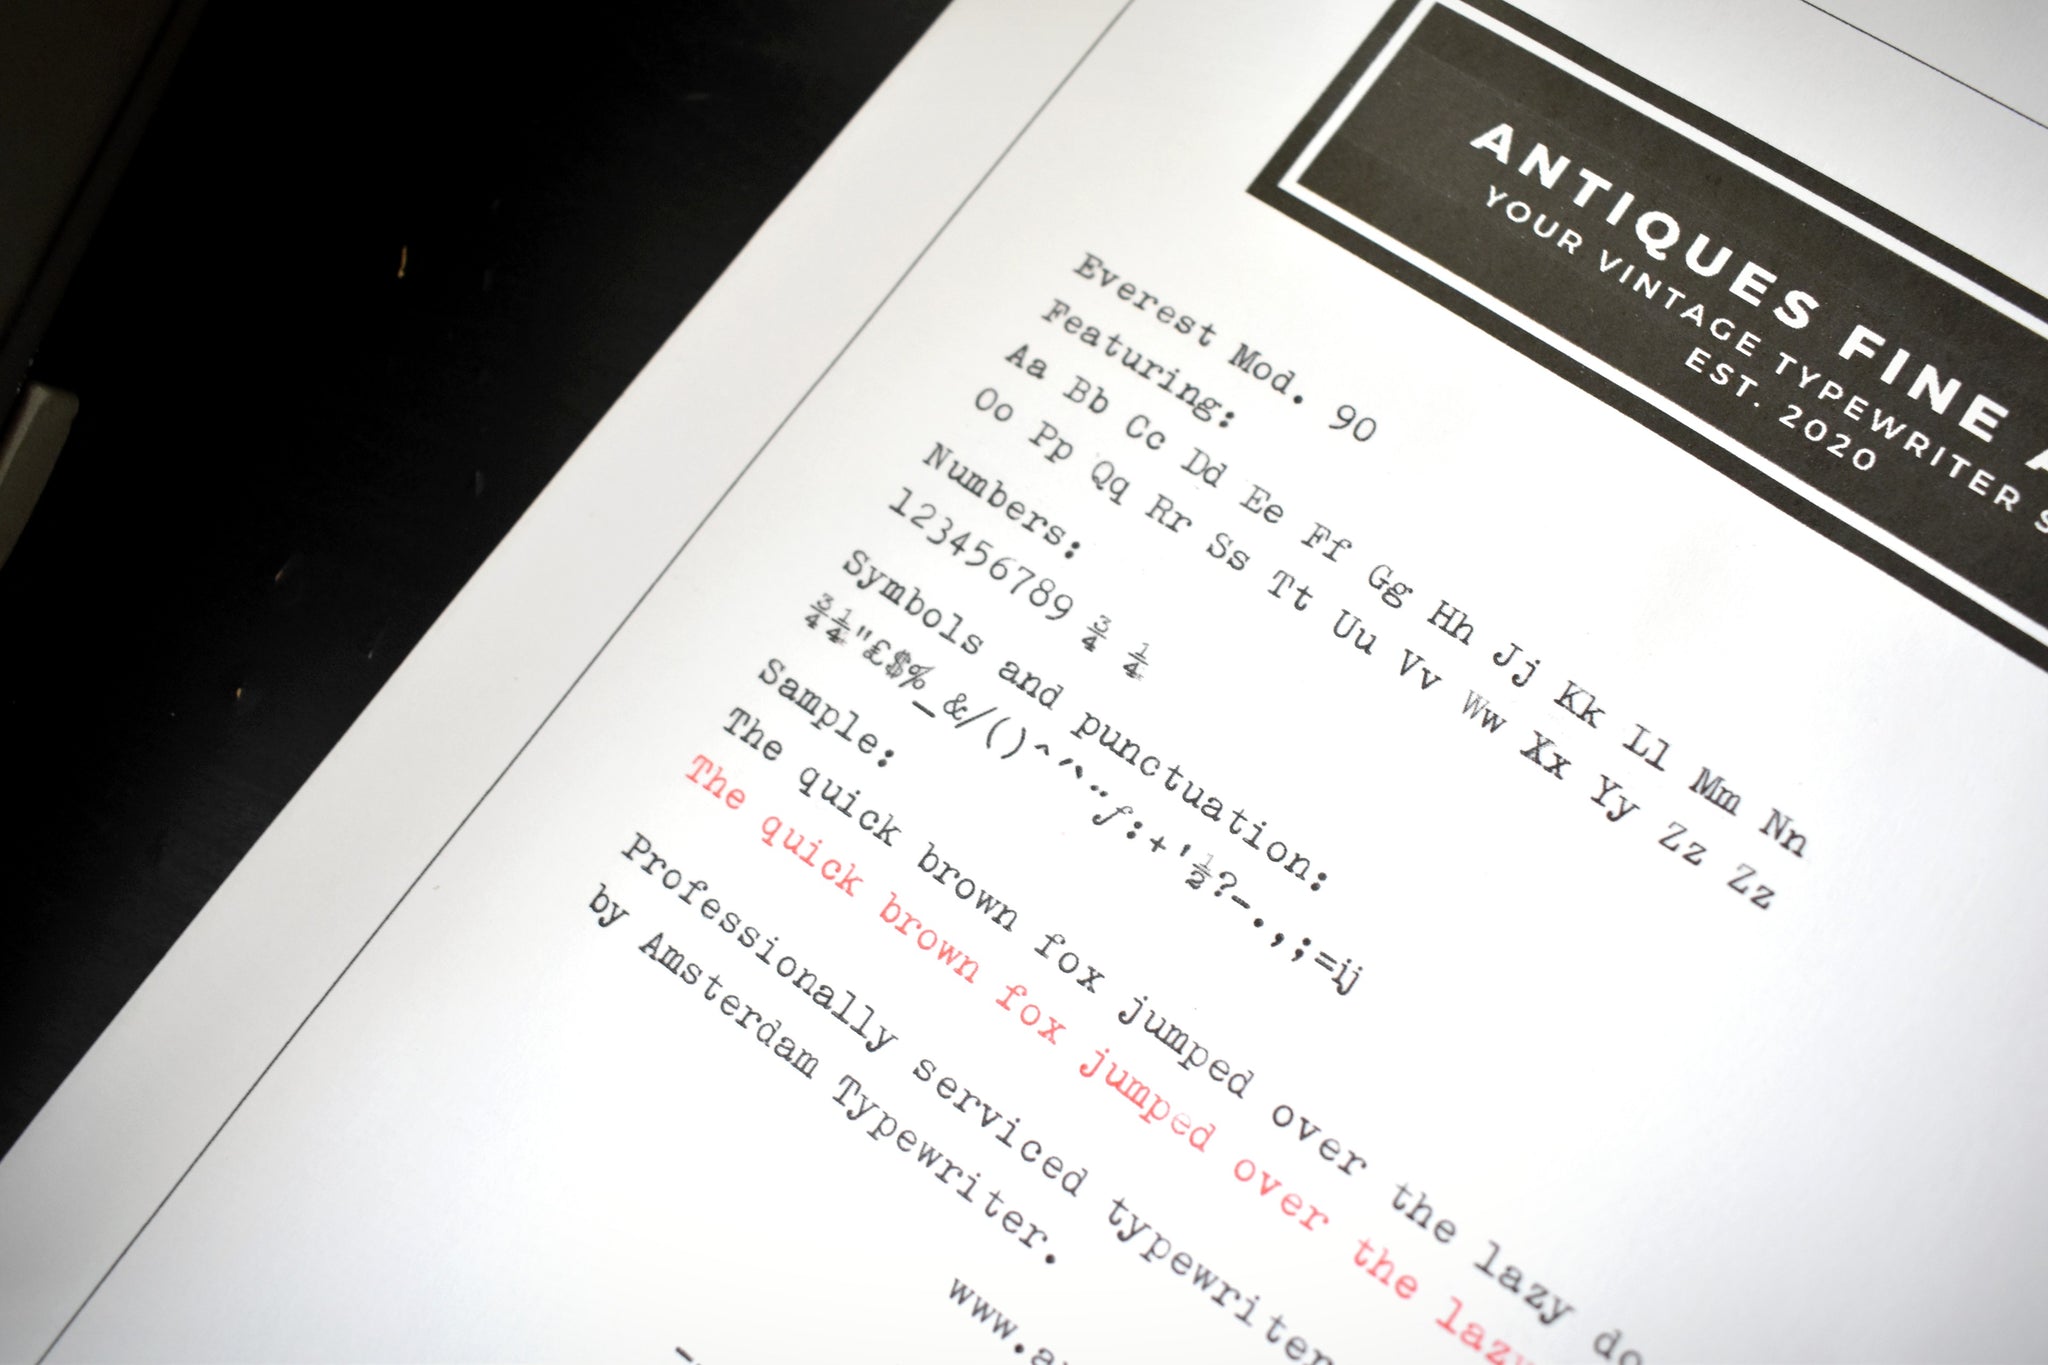 ANTIQUES FINE
YOUR VINTAGE TYPEWRITER
EST. 2020
Everest Mod. 90
Featuring:
Aa Bb Cc Dd Ee Ff Gg Hh Jj Kk Ll Mm Nn
Oo Pp Qq Rr Ss Tt Uu Vv Ww Xx Yy Zz Zz
Numbers:
123456789 ¾ ¼
Symbols and punctuation:
¾¼"£$%_&/()^´`¨ƒ:+'½?-.,;=ij
Sample:
The quick brown fox jumped over the lazy do
The quick brown fox jumped over the lazy
Professionally serviced typewriter
by Amsterdam Typewriter.
www.a